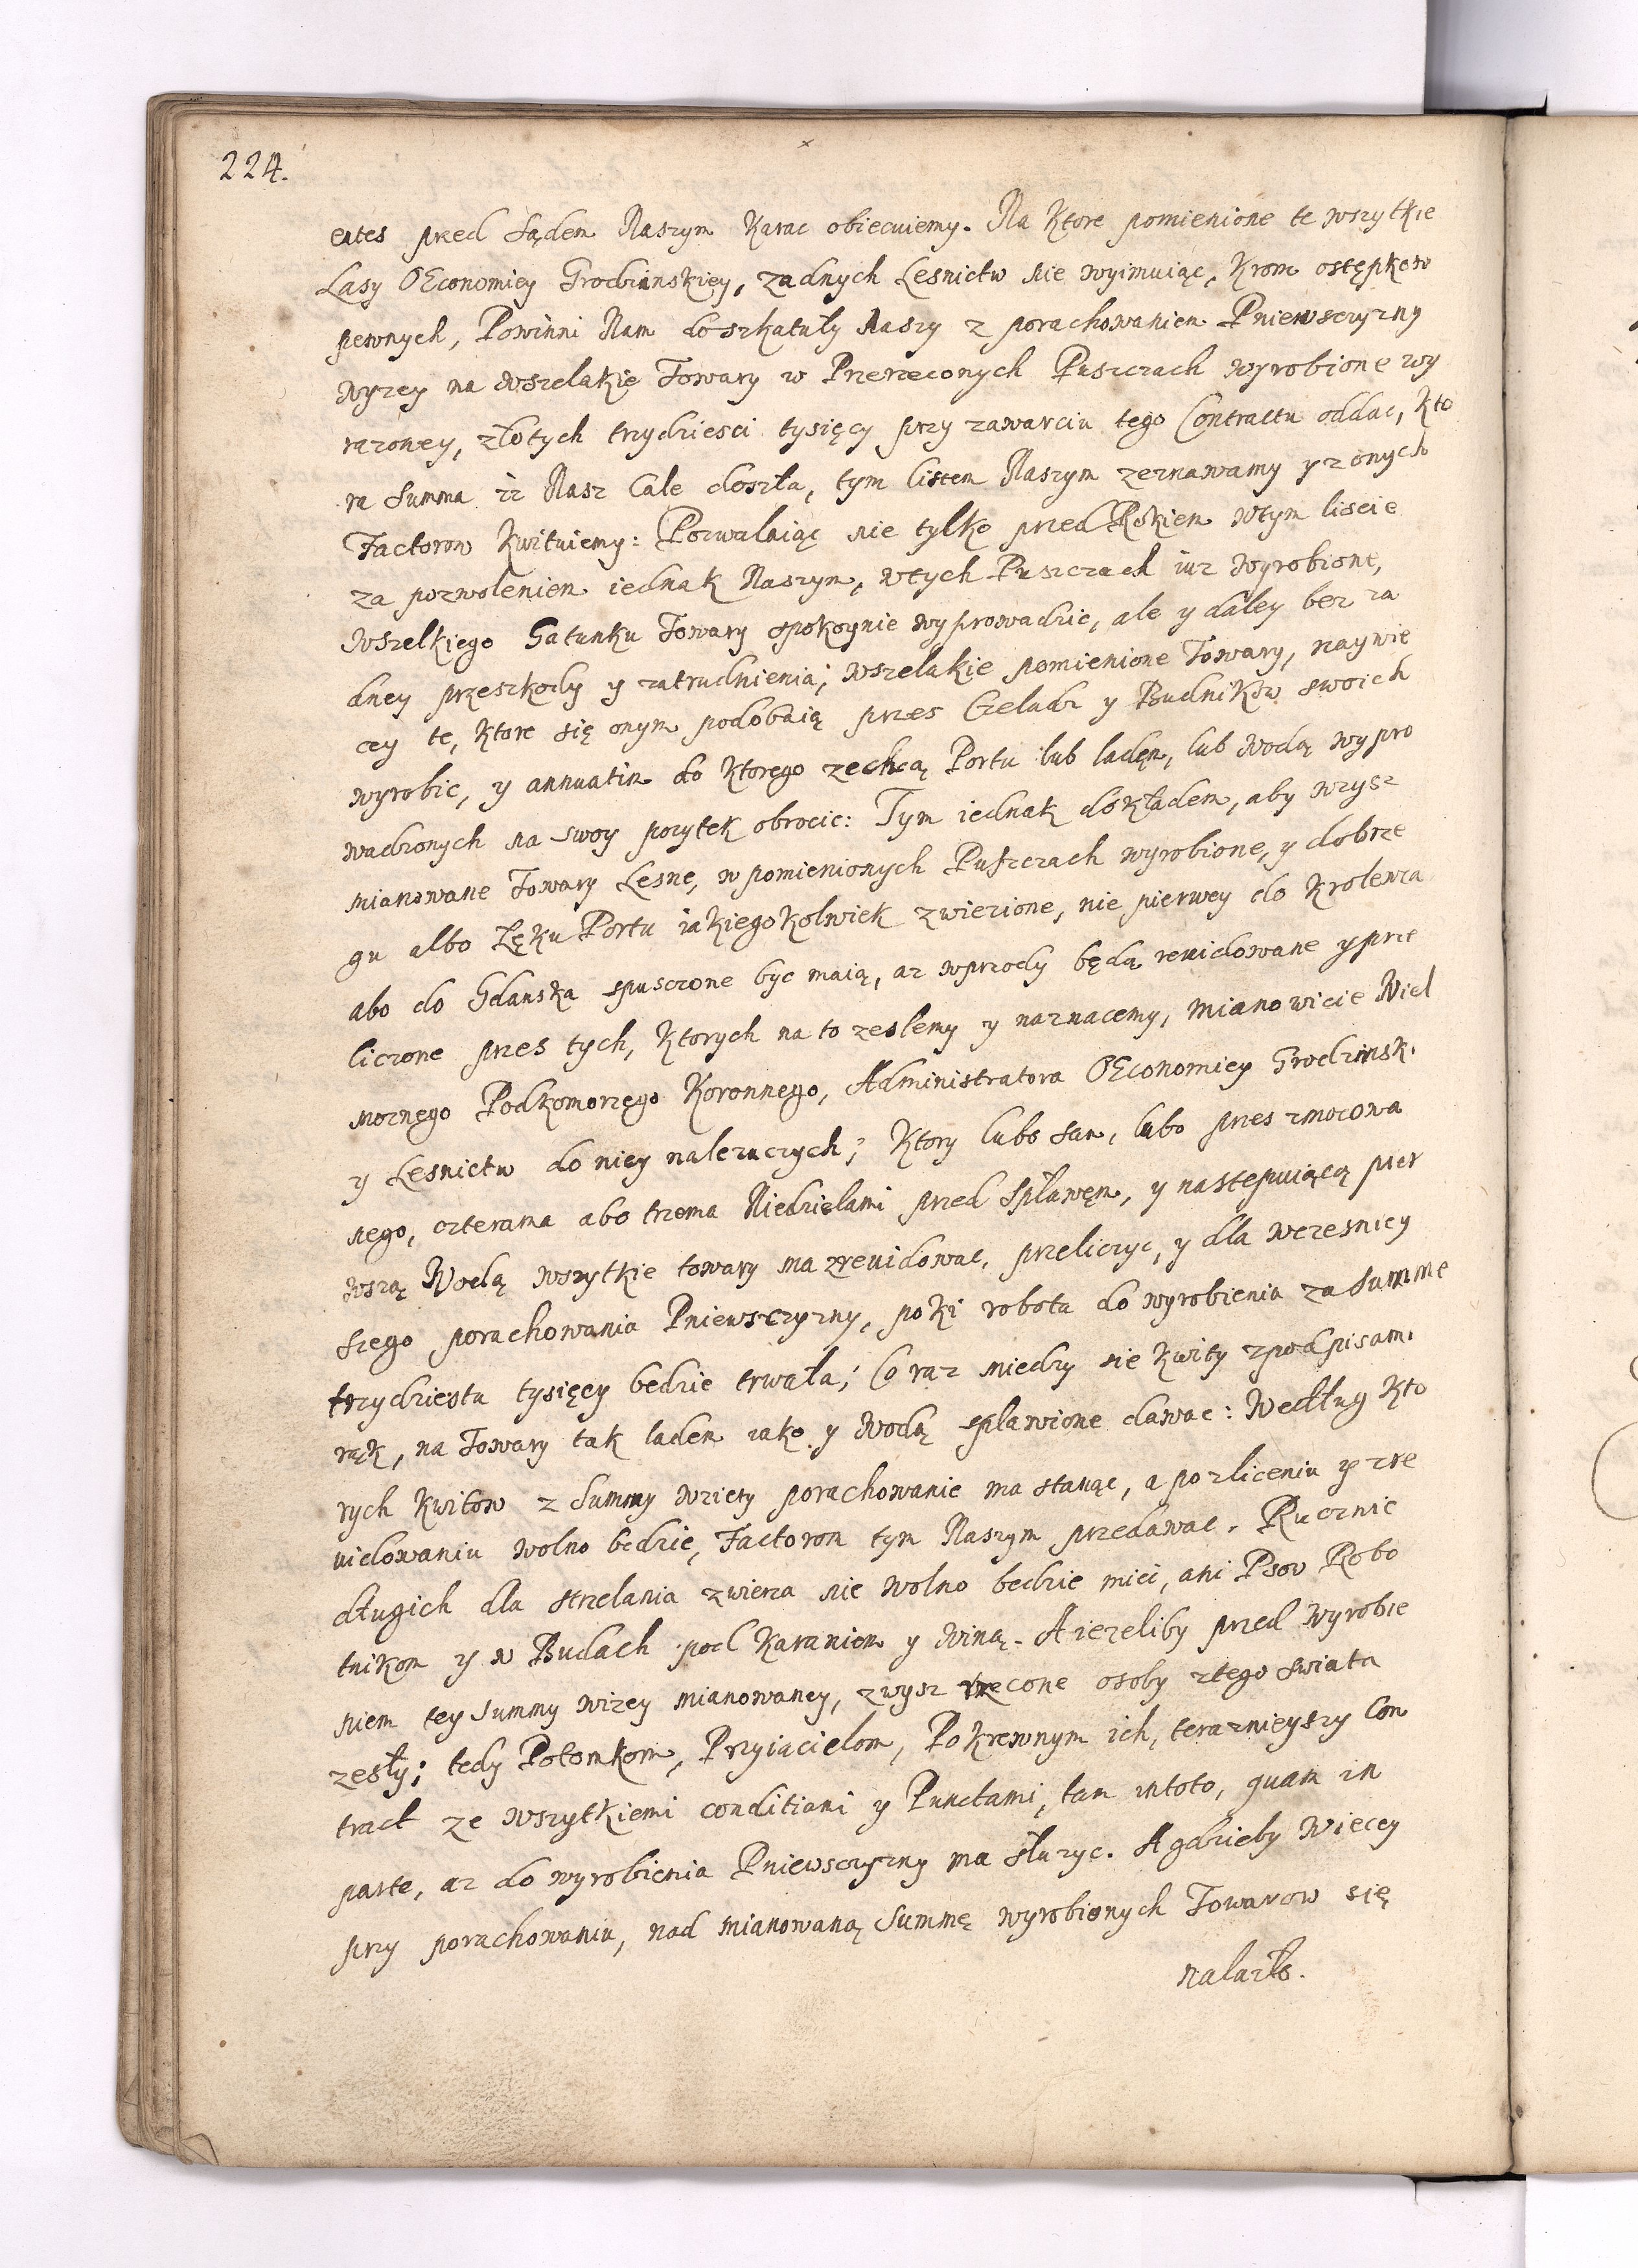 224.
entes przed Sądem Naszym karac obiecuiemy. Na ktore pomienione te wszytkie
Lasy OEconomiey Grodzinskiey, zadnych Lesnictw nie wyimuiąc, krom ostępkow
pewnych, Powinni Nam do szkatuły Naszy z porachowaniem Pniewsczyzny
wyzey na wszelakie Towary w Przerzeconych Puszczach wyrobione wy
razoney, złotych trzydziesci tysięcy przy zawarciu tego Contractu oddac, kto
ra Summa iz Nasz Cale doszła, tym listem Naszym zeznawamy y z onych
Factorow kwituiemy: Pozwalaiąc nie tylko przed Rokiem wtym liscie
za pozwoleniem iednak Naszym, wtych Puszczach iuz wyrobione,
wszelkiego Gatunku Towary spokoynie wyprowadzic, ale y daley bez za
dney przeszkody y zatrudnienia; wszelakie pomienione Towary, naywie
cey te, ktore się onym podobaią przes Czeladz y Budnikow swoich
wyrobic, y annuatim do ktorego zechcą Portu lub ladem, lub wodą wypro
wadzonych na swoy pozytek obrocic: Tym iednak dokładem, aby wzysz
mianowane Towary Lesne, w pomienionych Puszczach wyrobione, y dobrze
gu albo Lęku Portu iakiegokolwiek zwiezione, nie pierwey do Krolewca
abo do Gdanska spusczone byc maią, az wprzody będą reuidowane y prze
liczone przes tych, ktorych na to zeslemy y naznacemy, mianowicie Wiel
moznego Podkomorzego Koronnego, Administratora OEconomiey Grodzinsk.
y Lesnictw do niey nalezuczych; ktory lubo sam, lubo przes zmocowa
nego, czterama abo trzema Niedzielami przed Spławem, y nastepuiącą pier
wszą Wodą wszytkie towary ma zreuidowac, przeliczyc, y dla wczesniey
szego porachowania Pniewsczyzny, poki robota do wyrobienia za Summe
trzydziestu tysięcy bedzie trwała; Co raz miedzy sie kwity z podpisam.
rąk, na Towary tak ladem iako y wodą spławione dawac: Według kto
rych kwitow z Summy wziety porachowanie ma stanąc, a po zliczeniu y zre
uidowaniu wolno bedzie, Factorom tym Naszym przedawac. Rucznic
długich dla strzelania zwierza nie wolno bedzie miec, ani Psow Robo
tnikom y w Budach pod karaniem y winą. A iezeliby przed wyrobie
niem tey Summy wizey mianowaney, zwysz rzecone osoby z tego swiata
zesły; tedy Potomkom, Przyiacielom, Pokrewnym ich, teraznieyszy Con
tract ze wszytkiemi conditiami y Punctami, tam in toto, quam in
parte, az do wyrobienia Pniewsczyzny ma słuzyc. A gdzieby wiecey
przy porachowaniu, nad mianowaną Summę wyrobionych Towarow się
nalazło.